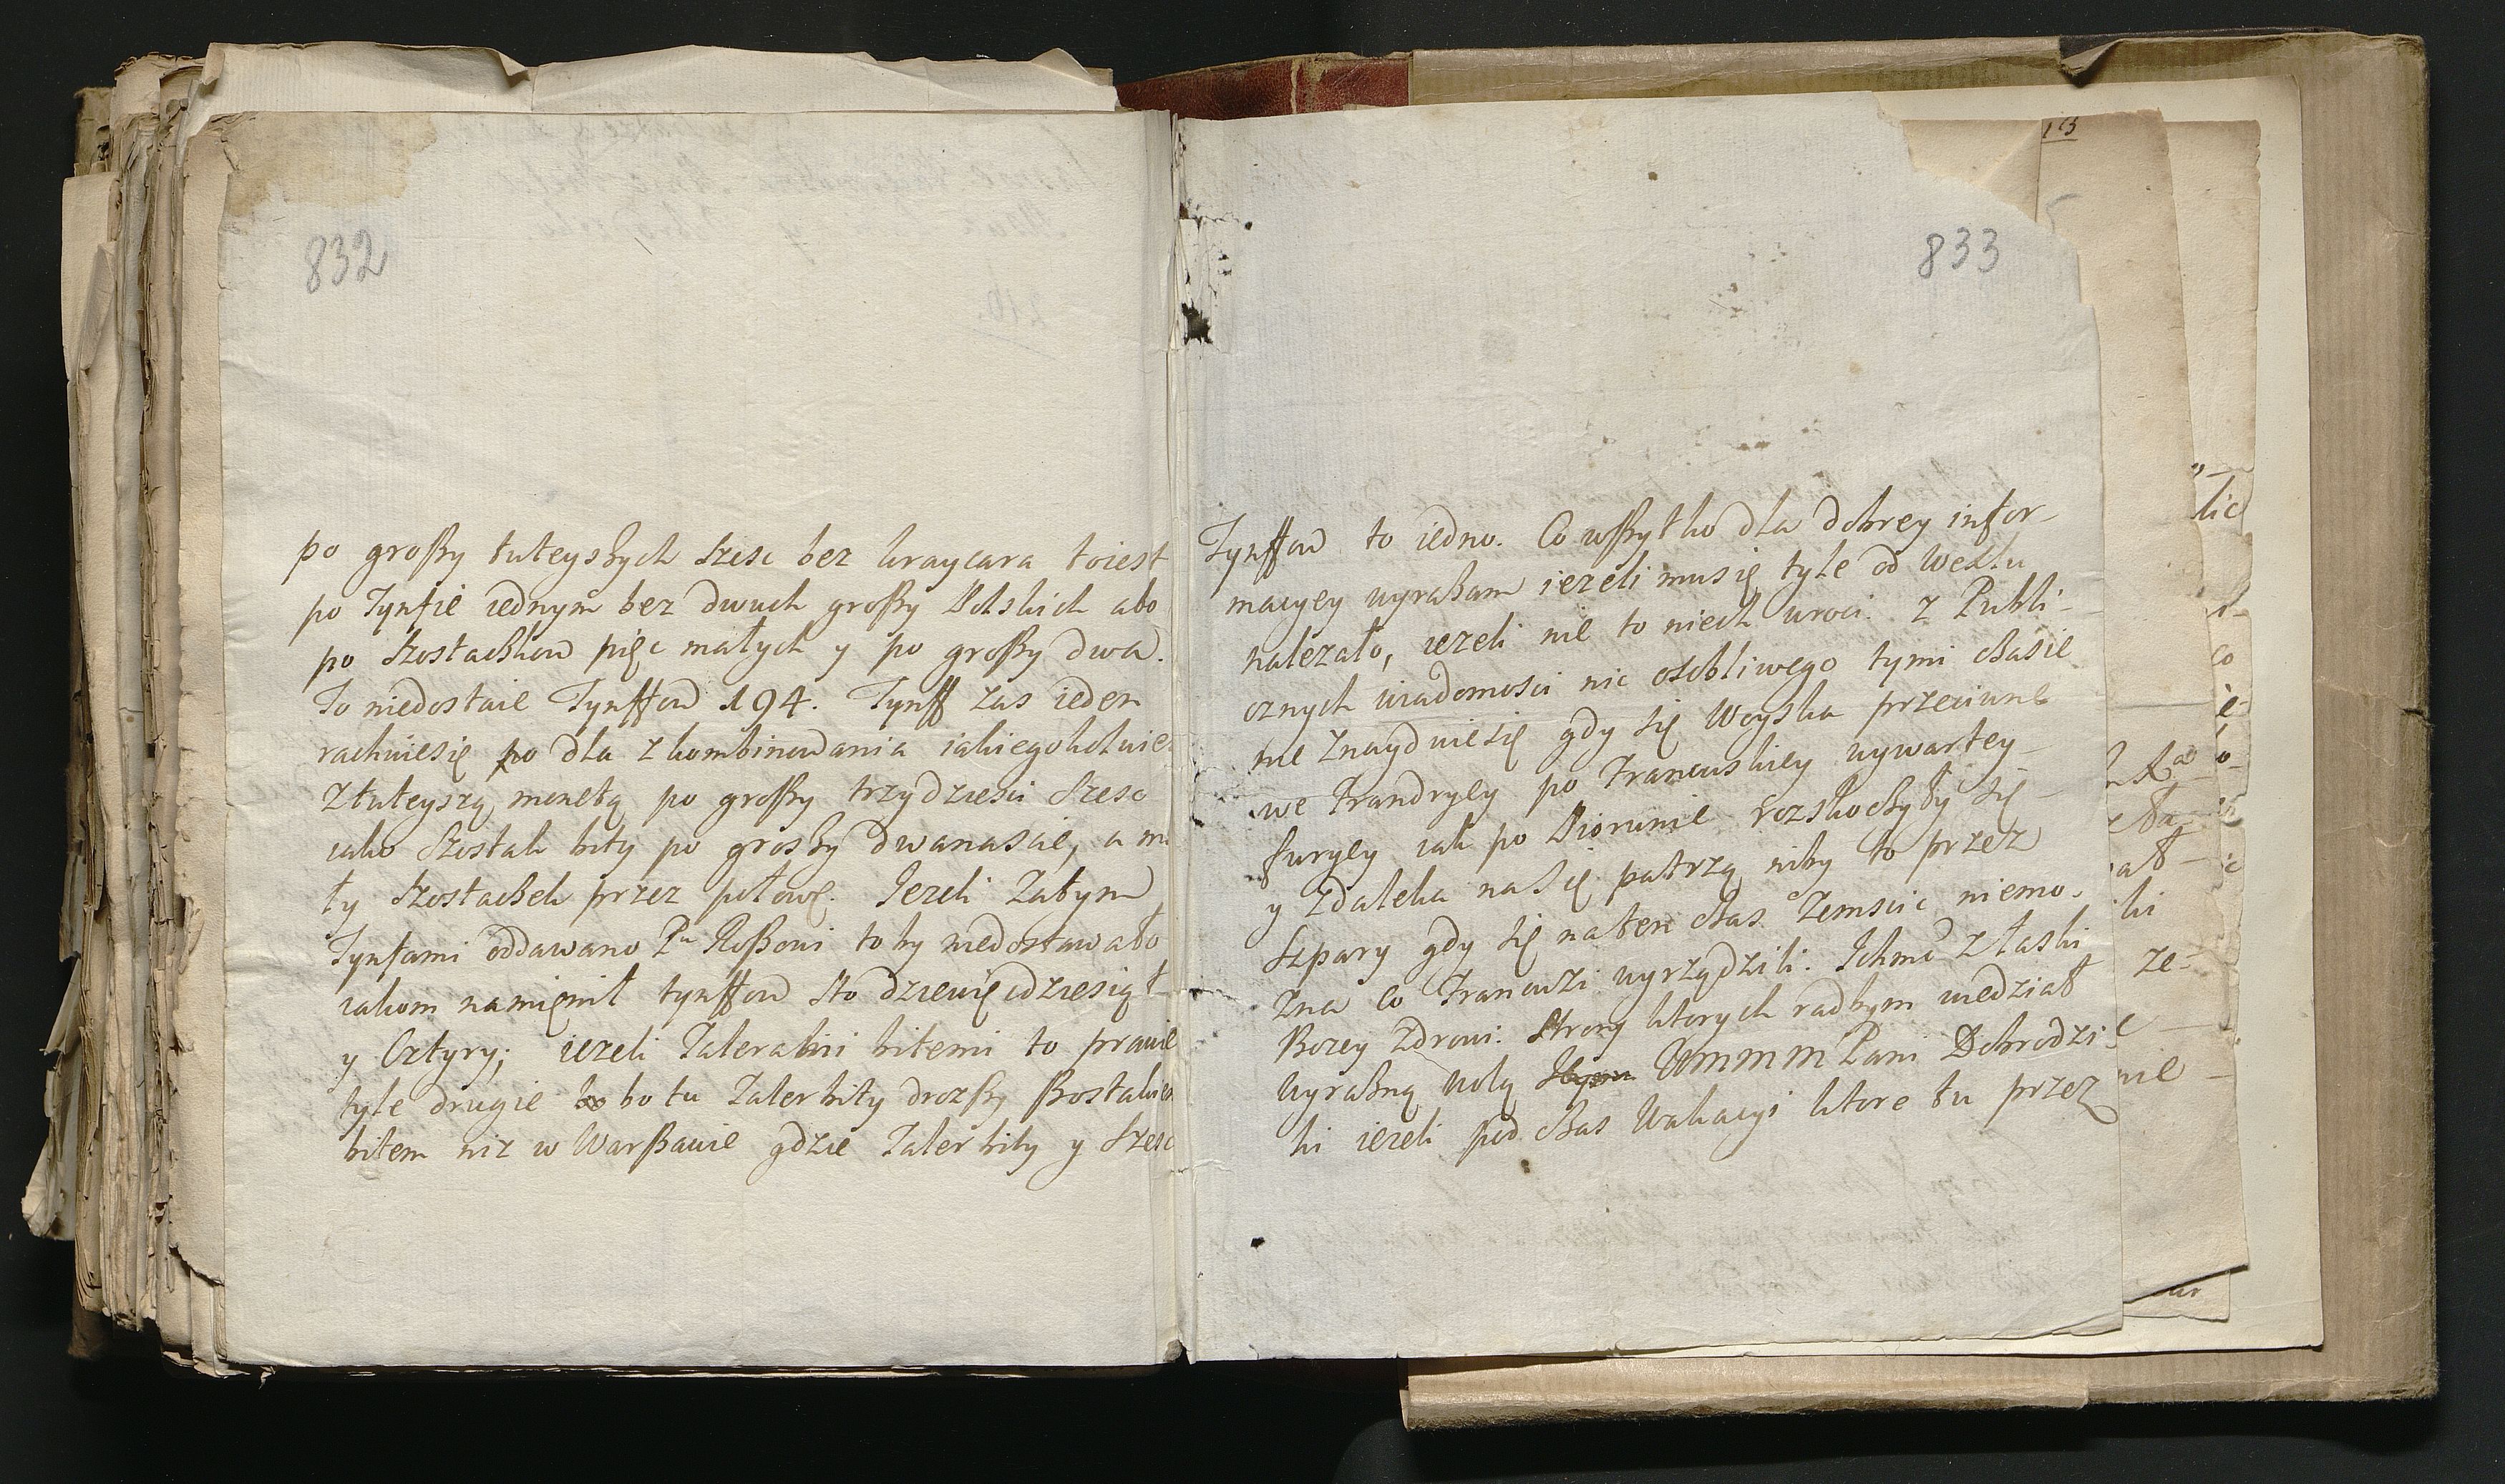 832
po groszy tuteyszych szesc bez kraycara toiest
po Tynfie iednym bez dwuch groszy Polskich abo
po Szostaszkow pięc małych y po groszy dwa.
To niedostaie Tynffow 194. Tynff zas ieden
rachuiesię po dla zkombinowania iakiegokolwie
ztuteyszą monetą po groszy trzydziesci szesc
iako Szostak bity po groszy dwanascie, a ma
ły Szostaszek przez połowę. Iezeli zatym
Tynfami oddawano Pu Roszowi to by niedostawało
iakom namięnił tynffow sto dziewięcdziesiąt
y Cztyry; iezeli Talerami bitemi to prawie
tyle drugie bo bo tu Taler bity drozszy szostakiem
bitem niz w Warszawie gdzie Taler bity y szesc
833
Tynffow to iedno. Co wszytko dla dobrey infor-
macyey wyrazam iezeli musię tyle od Wexlu
nalezało, iezeli nie to niech wroci. Z Publi-
cznych wiadomosci nic osobliwego tymi czasie
nie znayduiesię gdy się Woyska przeciwne
we Frandryey po Francuskiey wywartey
furyey iak po Piorunie rozskoczyły się
y zdaleka nasię patrzą niby to przez
szpary gdy się naten czas zemscic niemo-
zna co Francuzi wyrządzili. Ichmc z łaski
Bozey zdrowi. Strony ktorych radbym wiedział
wyrazną wolą WMMM Pani Dobrodzi-
ki iezeli pod czas Wakacyi ktore tu przez
13
lic
co
ki
ze-
nie